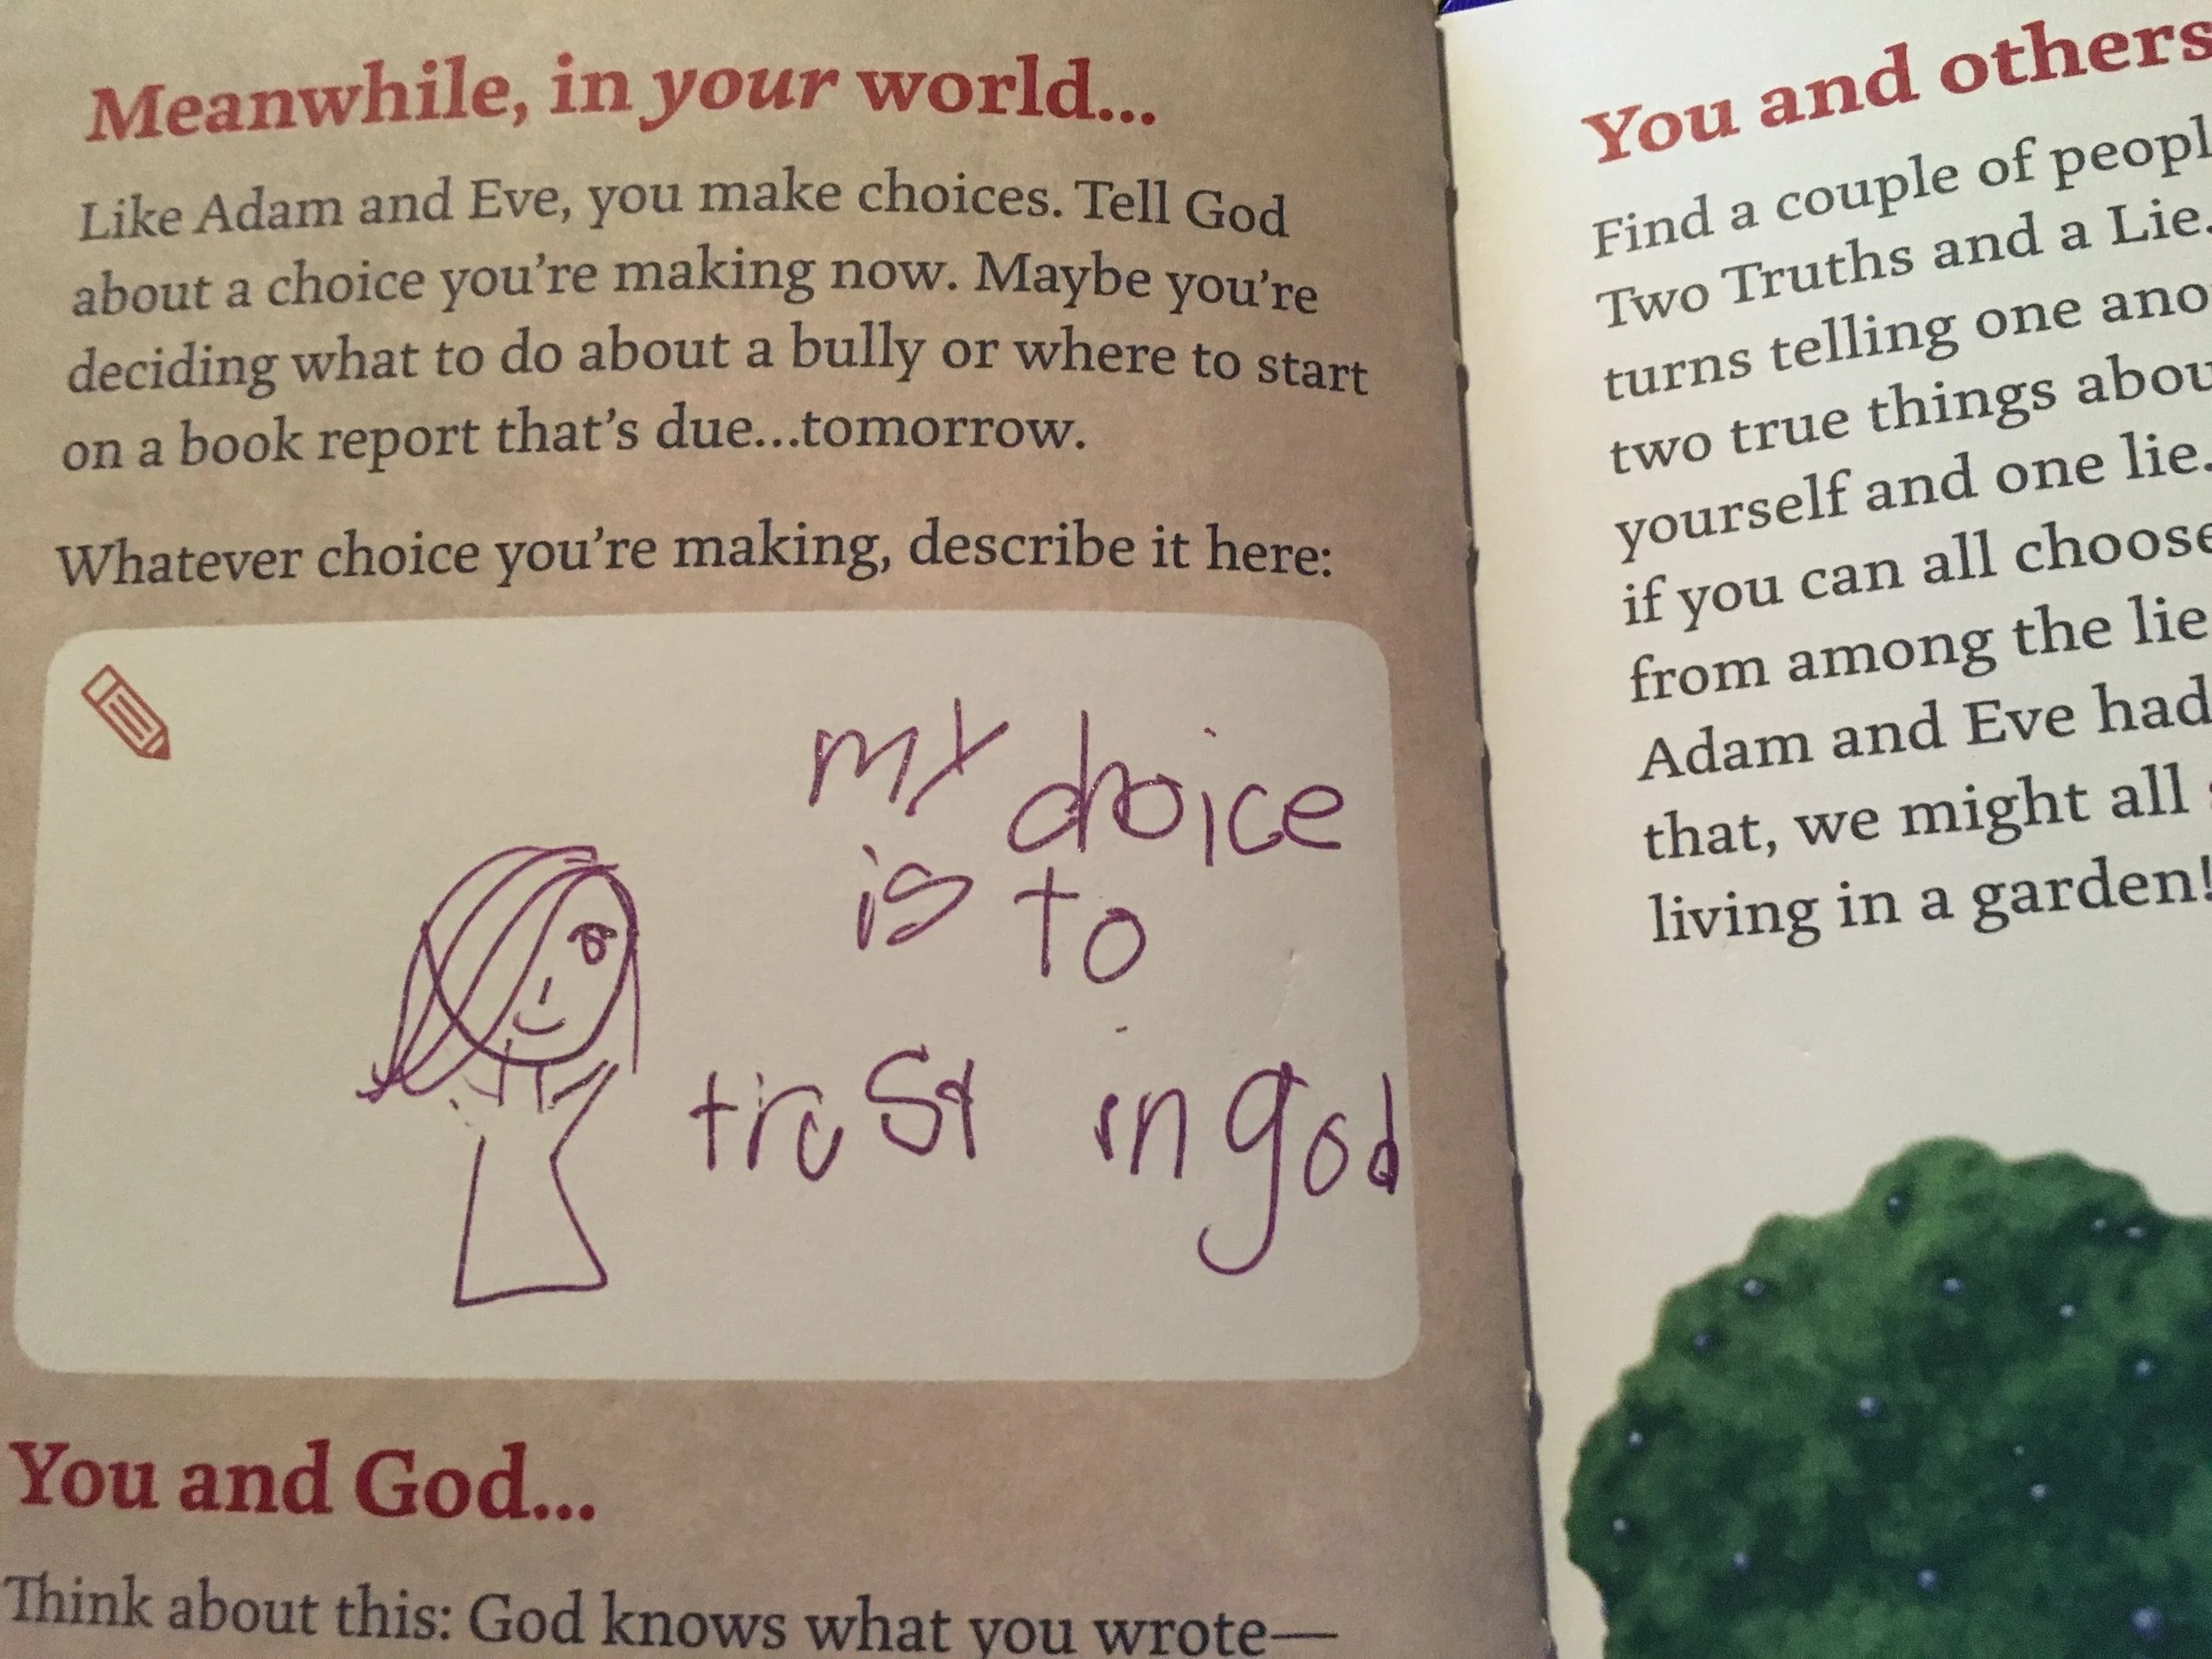 Meanwhile, in your world...
Like Adam and Eve, you make choices. Tell God
about a choice you're making now. Maybe you're
deciding what to do about a bully or where to start
on a book report that's due...tomorrow.
Whatever choice you're making, describe it here:
my choice
is to
trust in god
You and God...
Think about this: God knows what you wrote—
You and others
Find a couple of peopl
Two Truths and a Lie.
turns telling one ano
two true things abou
yourself and one lie.
if you can all choose
from among the lie
Adam and Eve had
that, we might all
living in a garden!